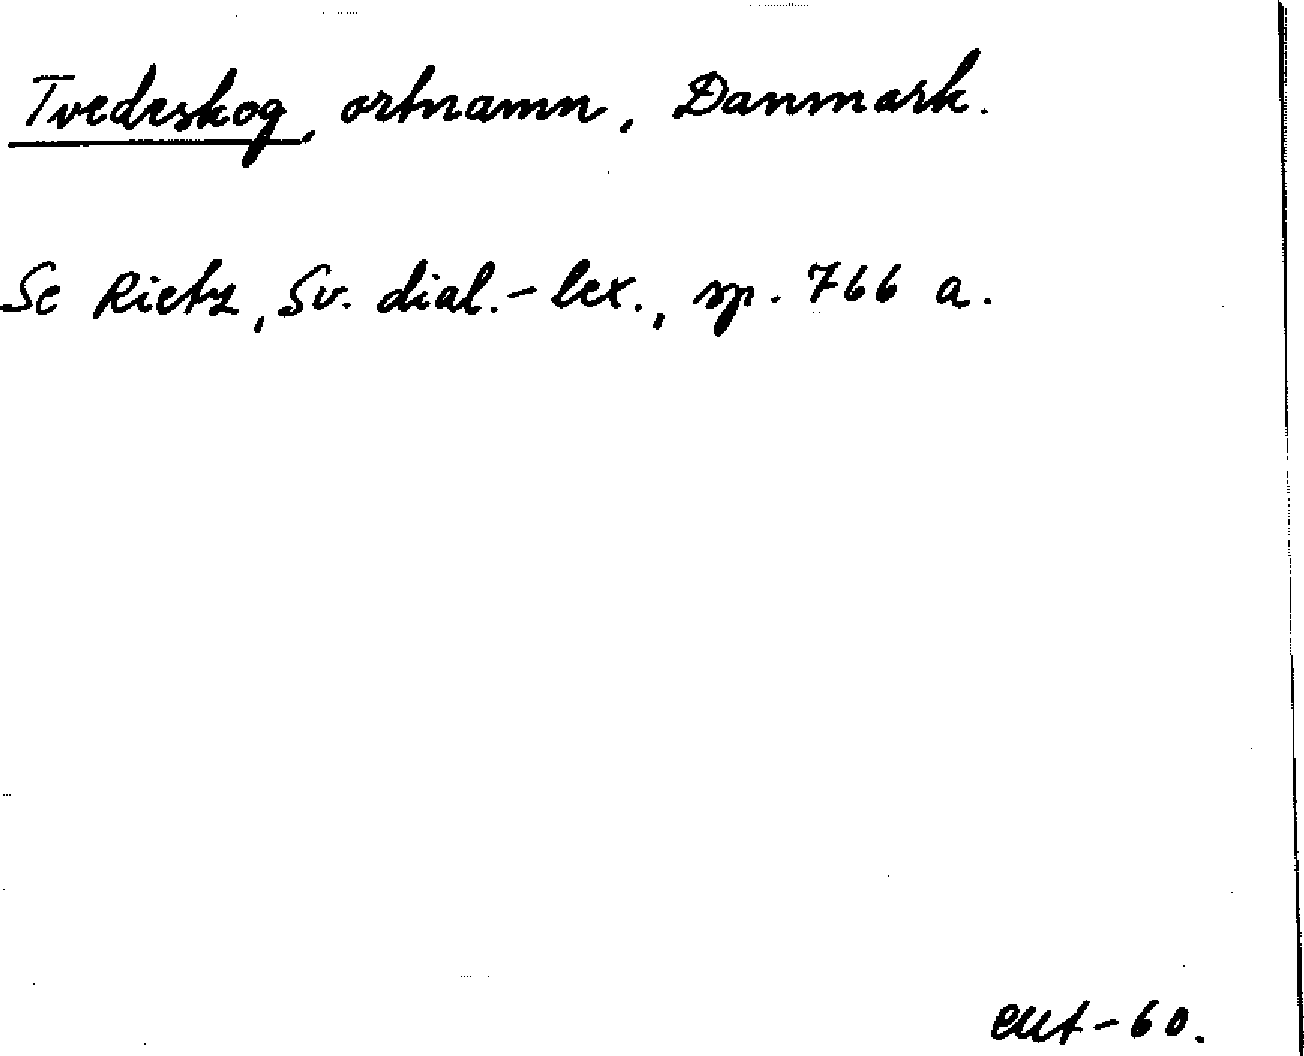 Tvedeskog, ortnamn, Danmark.
Se Rietz, Sv. dial.-lex., sp. 766 a.
-60.